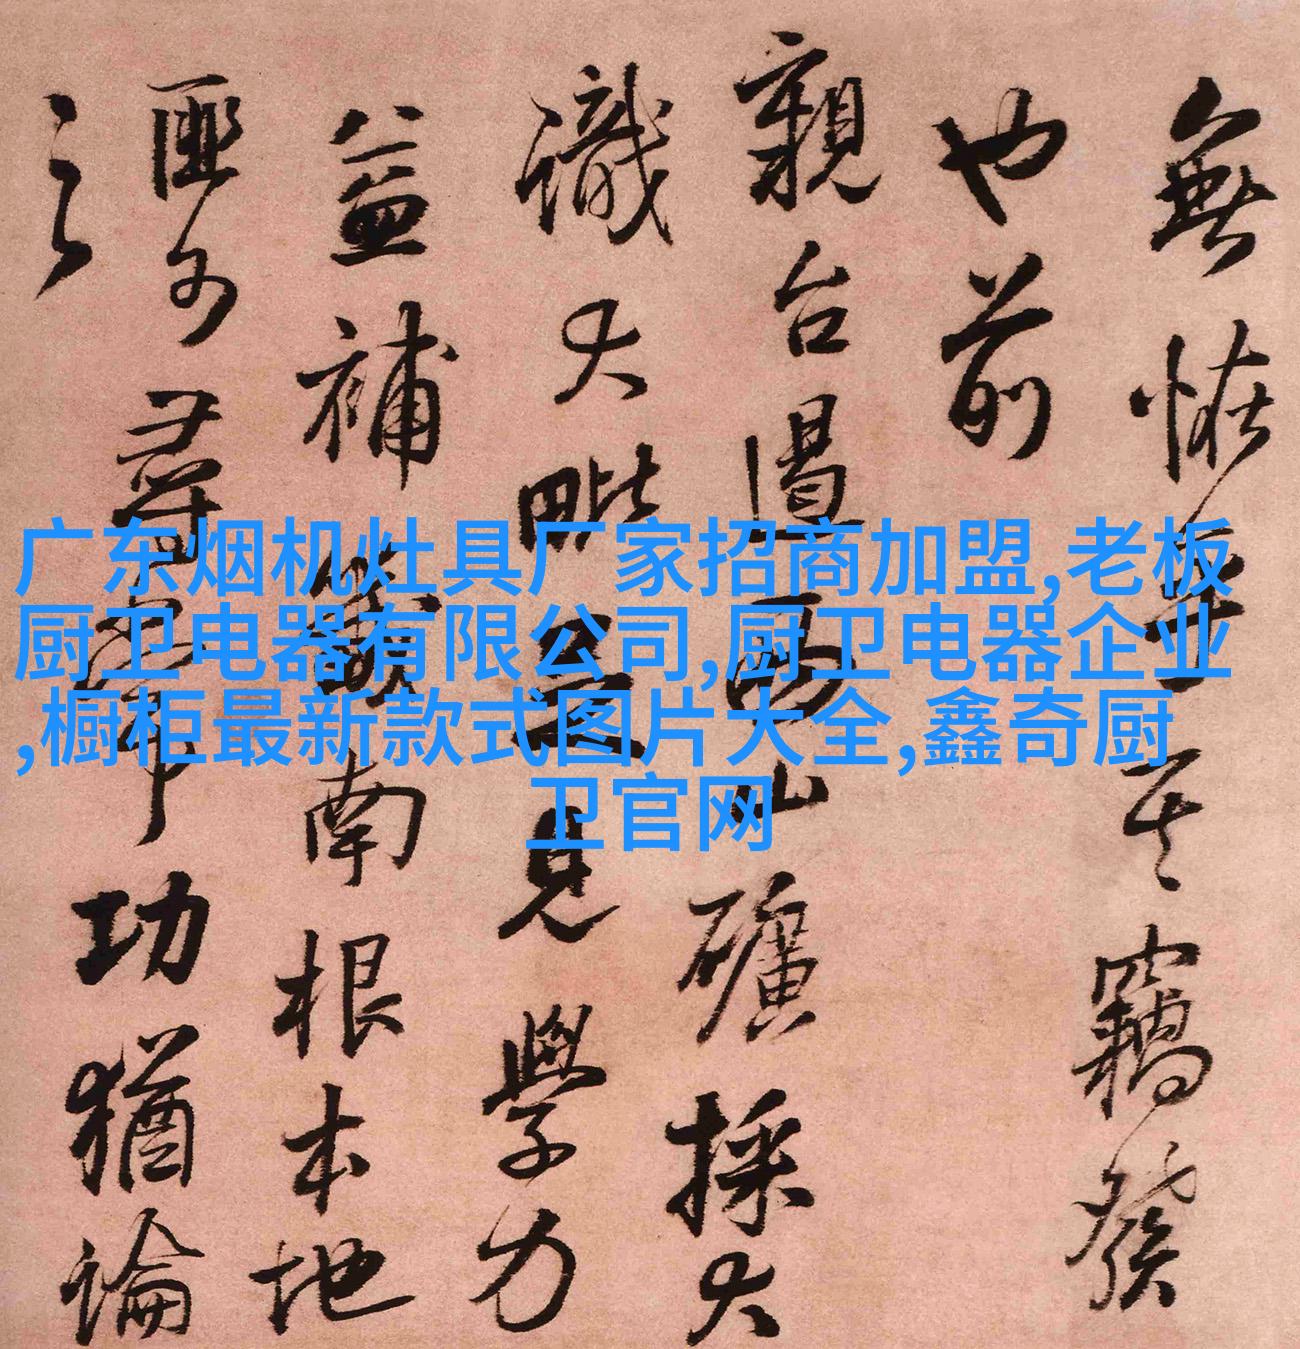 無恠乎其竊發
也前
親台遏山礦採大
識大毗見學力
益補畿南根本地
匪可尋常功猶論
之
广东烟机灶具厂家招商加盟,老板
厨卫电器有限公司,厨卫电器企业
,橱柜最新款式图片大全,鑫奇厨
卫官网